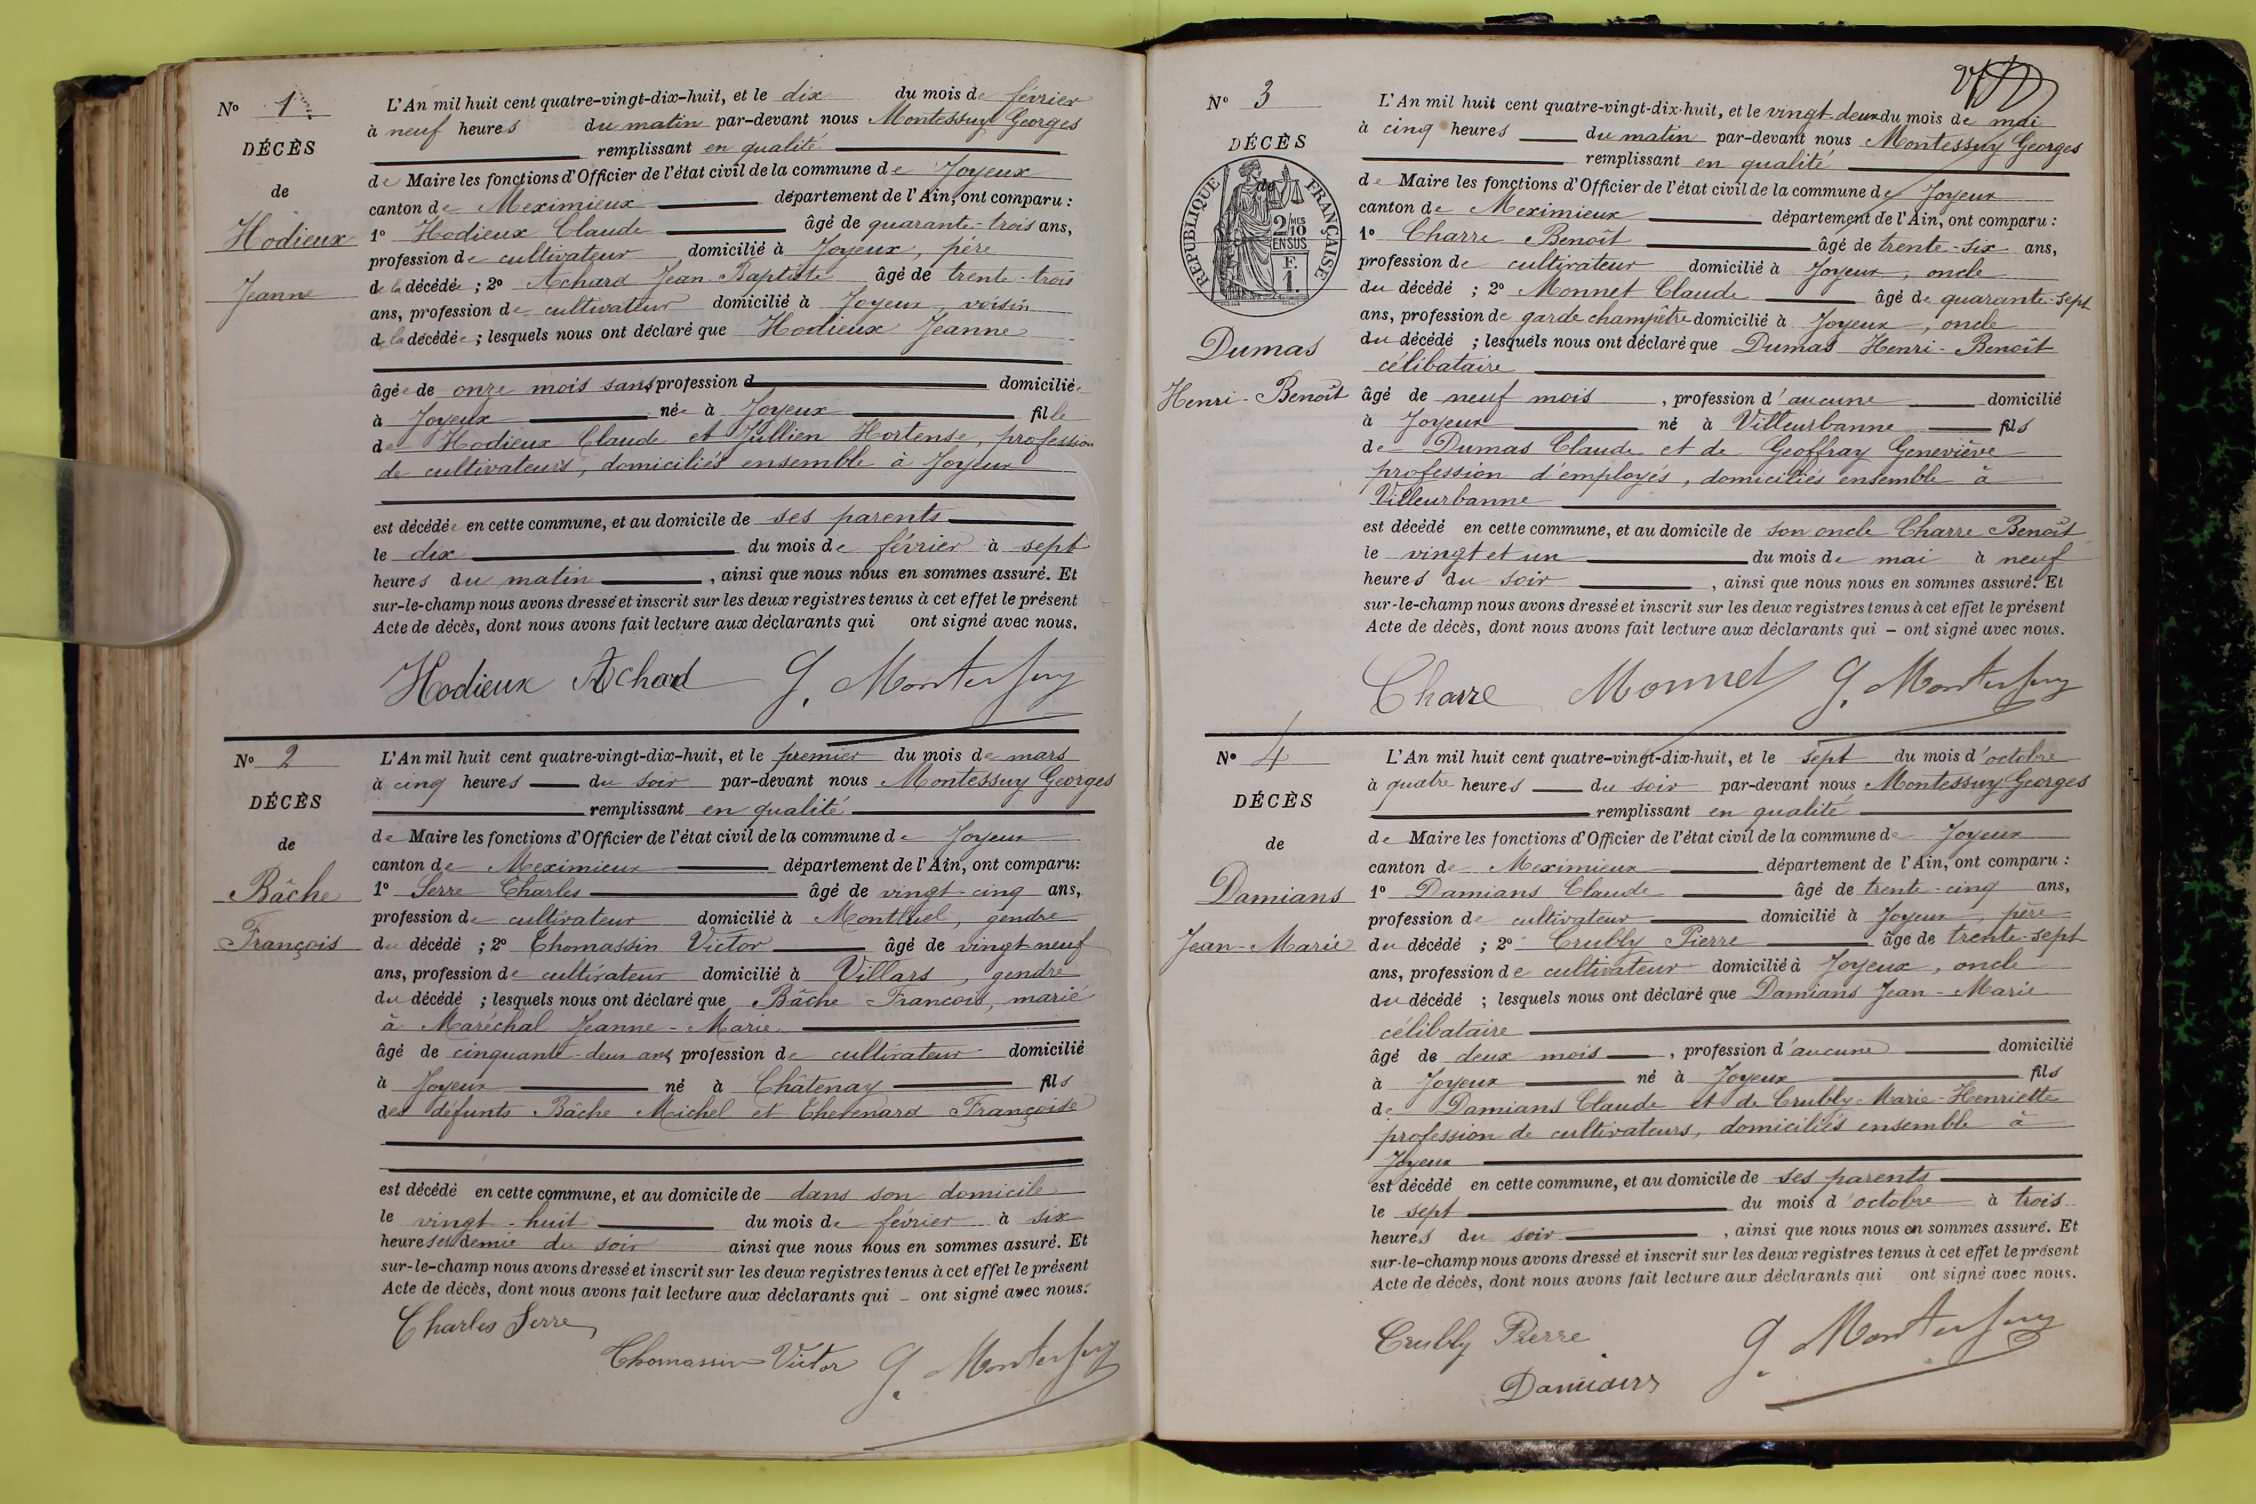 N° 1
DÉCÈS
de
Hodieux
Jeanne
L'An mil huit cent quatre-vingt-dix-huit, et le dix du mois de février
à neuf heures du matin par-devant nous Montessuy Georges
remplissant en qualité
de Maire les fonctions d'Officier de l'état civil de la commune de Joyeux
canton de Meximieux département de l'Ain, ont comparu :
1° Hodieux Claude âgé de quarante-trois ans,
profession de cultivateur domicilié à Joyeux, père
de la décédée ; 2° Achard Jean Baptiste âgé de trente-trois
ans, profession de cultivateur domicilié à Joyeux, voisin
de la décédée ; lesquels nous ont déclaré que Hodieux Jeanne
âgée de onze mois sans profession d domiciliée
à Joyeux née à Joyeux fille
de Hodieux Claude et Jullien Hortense, profession
de cultivateurs, domiciliés ensemble à Joyeux
est décédée en cette commune, et au domicile de ses parents
le dix du mois de février à sept
heures du matin , ainsi que nous nous en sommes assuré. Et
sur-le-champ nous avons dressé et inscrit sur les deux registres tenus à cet effet le présent
Acte de décès, dont nous avons fait lecture aux déclarants qui ont signé avec nous.
Hodieux Achard G. Montessuy
N° 2
DÉCÈS
de
Bâche
François
L'An mil huit cent quatre-vingt-dix-huit, et le premier du mois de mars
à cinq heures du soir par-devant nous Montessuy Georges
remplissant en qualité
de Maire les fonctions d'Officier de l'état civil de la commune de Joyeux
canton de Meximieux département de l'Ain, ont comparu :
1° Serre Charles âgé de vingt-cinq ans,
profession de cultivateur domicilié à Montluel, gendre
du décédé ; 2° Thomassin Victor âgé de vingt-neuf
ans, profession de cultivateur domicilié à Villars, gendre
du décédé ; lesquels nous ont déclaré que Bâche François, marié
à Maréchal Jeanne-Marie
âgé de cinquante-deux ans, profession de cultivateur domicilié
à Joyeux né à Châtenay fils
des défunts Bâche Michel et Thevenard Françoise
est décédé en cette commune, et au domicile de dans son domicile
le vingt-huit du mois de février à six
heures et demie du soir ainsi que nous nous en sommes assuré. Et
sur-le-champ nous avons dressé et inscrit sur les deux registres tenus à cet effet le présent
Acte de décès, dont nous avons fait lecture aux déclarants qui – ont signé avec nous.
Charles Serre
Thomassin Victor G. Montessuy
N° 3
DÉCÈS
de
RÉPUBLIQUE FRANÇAISE
2/10 MES
EN SUS
F.
1.
Dumas
Henri-Benoît
L'An mil huit cent quatre-vingt-dix-huit, et le vingt deux du mois de mai
à cinq heures du matin par-devant nous Montessuy Georges
remplissant en qualité
de Maire les fonctions d'Officier de l'état civil de la commune de Joyeux
canton de Meximieux département de l'Ain, ont comparu :
1° Charre Benoît âgé de trente-six ans,
profession de cultivateur domicilié à Joyeux, oncle
du décédé ; 2° Monnet Claude âgé de quarante-sept
ans, profession de garde champêtre domicilié à Joyeux, oncle
du décédé ; lesquels nous ont déclaré que Dumas Henri-Benoît
célibataire
âgé de neuf mois , profession d'aucune domicilié
à Joyeux né à Villeurbanne fils
de Dumas Claude et de Geoffray Geneviève
profession d'employés, domiciliés ensemble à
Villeurbanne
est décédé en cette commune, et au domicile de son oncle Charre Benoît
le vingt et un du mois de mai à neuf
heures du soir , ainsi que nous nous en sommes assuré. Et
sur-le-champ nous avons dressé et inscrit sur les deux registres tenus à cet effet le présent
Acte de décès, dont nous avons fait lecture aux déclarants qui – ont signé avec nous.
Charre Monnet G. Montessuy
N° 4
DÉCÈS
de
Damians
Jean-Marie
L'An mil huit cent quatre-vingt-dix-huit, et le sept du mois d'octobre
à quatre heures du soir par-devant nous Montessuy Georges
remplissant en qualité
de Maire les fonctions d'Officier de l'état civil de la commune de Joyeux
canton de Meximieux département de l'Ain, ont comparu :
1° Damians Claude âgé de trente-cinq ans,
profession de cultivateur domicilié à Joyeux, père
du décédé ; 2° Crubly Pierre âge de trente-sept
ans, profession de cultivateur domicilié à Joyeux, oncle
du décédé ; lesquels nous ont déclaré que Damians Jean-Marie
célibataire
âgé de deux mois , profession d'aucune domicilié
à Joyeux né à Joyeux fils
de Damians Claude et de Crubly Marie-Henriette
profession de cultivateurs, domiciliés ensemble à
Joyeux
est décédé en cette commune, et au domicile de ses parents
le sept du mois d'octobre à trois
heures du soir , ainsi que nous nous en sommes assuré. Et
sur-le-champ nous avons dressé et inscrit sur les deux registres tenus à cet effet le présent
Acte de décès, dont nous avons fait lecture aux déclarants qui ont signé avec nous.
Crubly Pierre G. Montessuy
Damians